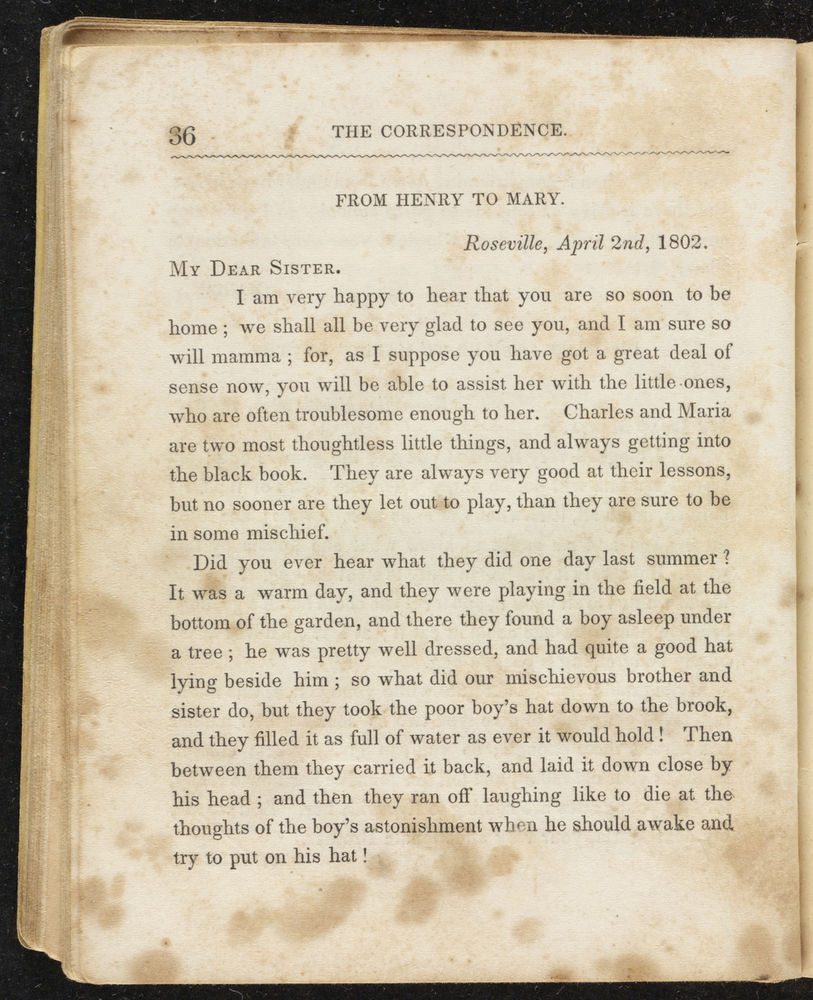 36
THE CORRESPONDENCE.
FROM HENRY TO MARY.
Roseville, April 2nd, 1802.
My Dear Sister.
I am very happy to hear that you are so soon to be
home ; we shall all be very glad to see you, and I am sure so
will mamma ; for, as I suppose you have got a great deal of
sense now, you will be able to assist her with the little ones,
who are often troublesome enough to her. Charles and Maria
are two most thoughtless little things, and always getting into
the black book. They are always very good at their lessons,
but no sooner are they let out to play, than they are sure to be
in some mischief.
Did you ever hear what they did one day last summer ?
It was a warm day, and they were playing in the field at the
bottom of the garden, and there they found a boy asleep under
a tree ; he was pretty well dressed, and had quite a good hat
lying beside him ; so what did our mischievous brother and
sister do, but they took the poor boy's hat down to the brook,
and they filled it as full of water as ever it would hold ! Then
between them they carried it back, and laid it down close by
his head ; and then they ran off laughing like to die at the
thoughts of the boy's astonishment when he should awake and
try to put on his hat !